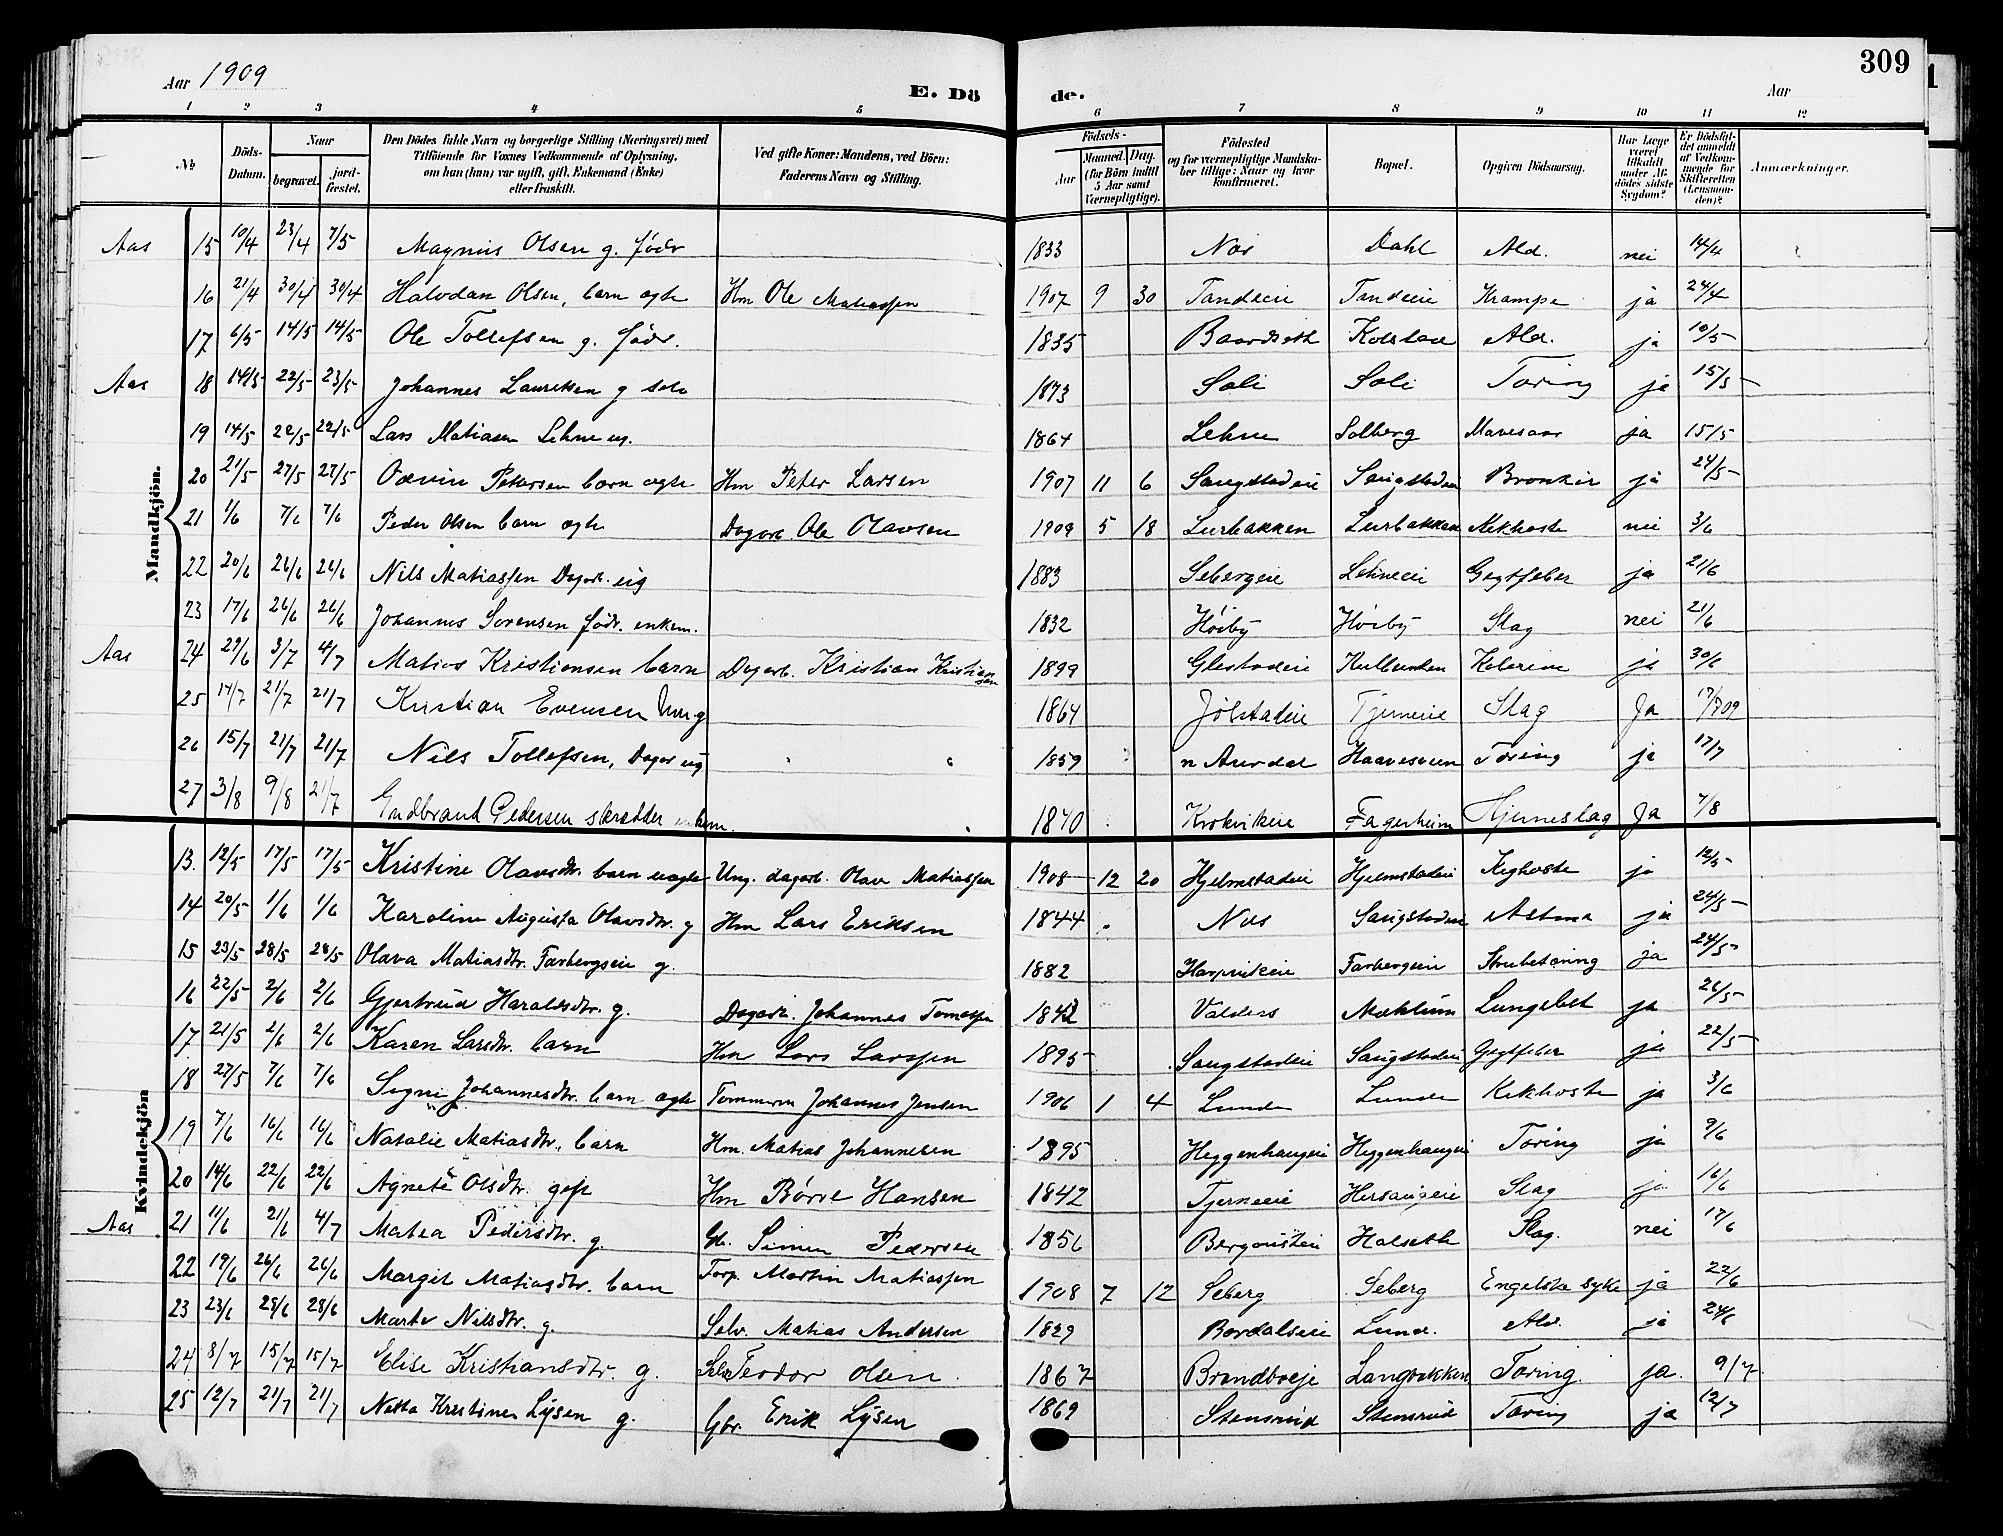 309
Aar 1909
E. Dö
de.
Aar
1 2 3 4 5 6 7 8 9 10 11 12
No
Döds-Datum.
Naar
begravet.
jordfæstet.
Den Dödes fulde Navn og borgerlige Stilling (Næringsvei) med
Tilföiende for Voxnes Vedkommende af Oplysning,
om han (hun) var ugift, gift, Enkemand (Enke)
eller fraskilt.
Ved gifte Koner: Mandens, ved Börn:
Faderens Navn og Stilling.
Födsels-
Aar
Maaned. Dag.
(for Börn indtil
5 Aar samt
Værnepligtige).
Födested
og for værnepligtige Mandska-
ber tillige: Naar og hvor
konfirmeret.
Bopæl.
Opgiven Dödsaarsag.
Har Læge
været
tilkaldt
under Af-
dödes sidste
Sygdom?
Er Dödsfal-
det anmeldt
af Vedkom-
mende for
Skifteretten
(Lensman-
den)?
Anmærkninger.
Mandkjön.
Aas 15 10/4 23/4 7/5 Magnus Olsen g. födr 1833 Næs Dahl Ald. nei 14/4
16 21/4 30/4 30/4 Halvdan Olsen, barn ægte Hm Ole Matiassen 1907 9 30 Tandeie Tandeie Krampe ja 24/4
17 6/5 14/5 14/5 Ole Tollefsen g. födr. 1835 Baardseth Kolstad Ald. ja 10/5
Aas 18 14/5 22/5 23/5 Johannes Lauritsen g selv 1873 Soli Soli Tæring ja 15/5
19 14/5 22/5 22/5 Lars Matiasen Lehne ug. 1864 Lehne Solberg Mavesaar ja 15/5
20 21/5 27/5 27/5 Petersen barn ægte Hm Peter Larsen 1907 11 6 Saugstadeie Saugstadeie Bronkit ja 24/5
21 1/6 7/6 7/6 Peder Olsen barn ægte Dagarb Ole Olavsen 1909 5 18 Lurbakken Lurbakken Kikhoste nei 3/6
22 20/6 26/6 26/6 Nils Matiassen Dagarb. ug 1883 Sebergeie Lehneeie Gigtfeber ja 21/6
23 17/6 26/6 26/6 Johannes Sorensen födr. enkem. 1832 Höiby Höiby Slag nei 21/6
Aas 24 29/6 3/7 4/7 Matias Kristiansen barn Dagarb. Kristian Kristiansen 1899 Glestadeie Kulbunden Kolerine ja 30/6
25 14/7 21/7 21/7 Kristian Evensen g 1864 Jölstadeie Tjerneie Slag Ja 17/709
26 15/7 21/7 21/7 Nils Tollefsen, Dagar ug 1859 n Aurdal Haavesveen Tæring ja 17/7
27 3/8 9/8 21/7 Gudbrand Pedersen skrædder enkem. 1840 Krokvikeie Fagerheim Hjerneslag Ja 7/8
Kvindekjön
13. 12/5 17/5 17/5 Kristine Olavsdtr. barn uægte Ung. dagarb. Olav Matiassen 1908 12 20 Hjelmstadeie Hjelmstadeie Kighoste ja 12/5
14 20/5 1/6 1/6 Karoline Augusta Olavsdtr. g Hm Lars Eriksen 1844 Næs Saugstadeie Astma ja 24/5
15 23/5 28/5 28/5 Olava Matiasdtr. Farbergseie g. 1882 Harpvikeie Farbergeie Strubetæring ja 24/5
16 22/5 2/6 2/6 Gjertrud Haraldsdtr. g. Dagarb. Johannes Tomassen 1842 Valders Mæhlum Lungebet ja 26/5
17 21/5 2/6 2/6 Karen Larsdtr. barn Hm Lars Larssen 1895 Saugstadeie Saugstadeie Gigtfeber ja 22/5
18 27/5 7/6 7/6 Signe Johannesdtr. barn ægte Tommerm Johannes Jensen 1906 1 4 Lunde Lunde Kikhoste ja 3/6
19 7/6 16/6 16/6 Natalie Matiasdtr. barn Hm. Matias Johannesen 1895 Heggenhaugeie Heggenhaugeie Tæring ja 9/6
20 14/6 22/6 22/6 Agnete Olsdtr. gift Hm Börre Hansen 1842 Tjerneeie Hersaugeie Slag ja 16/6
Aas 21 11/6 21/6 4/7 Matea Pedersdtr. g. Gb. Simen Pedersen 1856 Halseth Slag. nei 17/6
22 19/6 26/6 26/6 Margit Matiasdtr. barn Forp. Martin Matiassen 1908 7 12 Seberg Seberg Engelske syke ja 22/6
23 23/6 28/6 28/6 Marte Nilsdtr. g. Selv. Matias Andersen 1829 Bordalseie Lund. Ald. ja 24/6
24 8/7 15/7 15/7 Elise Kristiansdtr. g. Selv Teodor Olsen. 1867 Brandboeje Langbakken Tæring. ja. 9/7
25 12/7 21/7 21/7 Netta Kristine Lysen g. Gbr. Erik Lysen 1869 Stensrud Stensrud Tæring ja 12/7